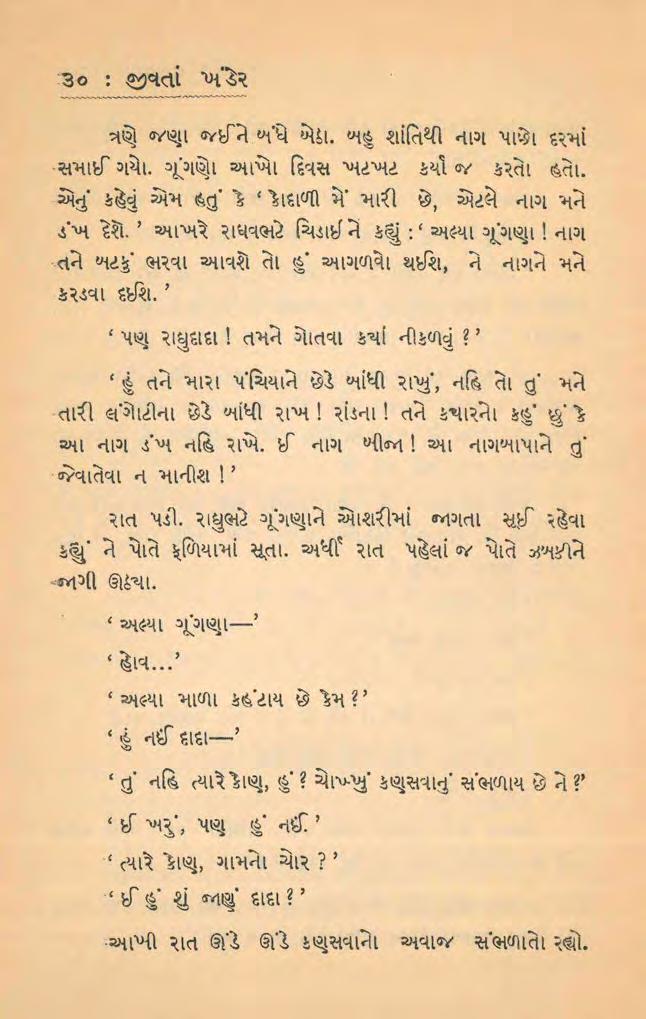 ૩૦ : જીવતાં ખંડેર
ત્રણે જણા જઈને બંધે બેઠા. બહુ શાંતિથી નાગ પાછો દરમાં
સમાઈ ગયો. ગૂંગણો આખો દિવસ ખટખટ કર્યા જ કરતો હતો.
એનું કહેવું એમ હતું કે ‘ કોદાળી મેં મારી છે, એટલે નાગ મને
ડંખ દેશે. ’ આખરે રાઘવભટે ચિડાઈને કહ્યું : ‘ અલ્યા ગૂંગણા ! નાગ
તને બટકું ભરવા આવશે તો હું આગળવો થઈશ, ને નાગને મને
કરડવા દઈશ. ’
‘ પણ રાઘુદાદા ! તમને ગોતવા ક્યાં નીકળવું ? ’
‘ હું તને મારા પંચિયાને છેડે બાંધી રાખું, નહિ તો તું મને
તારી લંગોટીના છેડે બાંધી રાખ ! રાંડના ! તને ક્યારનો કહું છું કે
આ નાગ ડંખ નહિ રાખે. ઈ નાગ બીજા ! આ નાગબાપાને તું
જેવાતેવા ન માનીશ ! ’
રાત પડી. રાઘુભટે ગૂંગણાને ઓશરીમાં જાગતા સૂઈ રહેવા
કહ્યું ને પોતે ફળિયામાં સૂતા. અર્ધી રાત પહેલાં જ પોતે ઝબકીને
જાગી ઊઠ્યા.
‘ અલ્યા ગૂંગણા—’
‘ હોવ...’
‘ અલ્યા માળા કહંટાય છે કેમ ? ’
‘ હું નઈ દાદા—’
‘ તું નહિ ત્યારે કોણ, હું ? ચોખ્ખું કણસવાનું સંભળાય છે ને ? ’
‘ ઈ ખરું, પણ હું નઈ. ’
‘ ત્યારે કોણ, ગામનો ચોર ? ’
‘ ઈ હું શું જાણું દાદા ? ’
આખી રાત ઊંડે ઊંડે કણસવાનો અવાજ સંભળાતો રહ્યો.